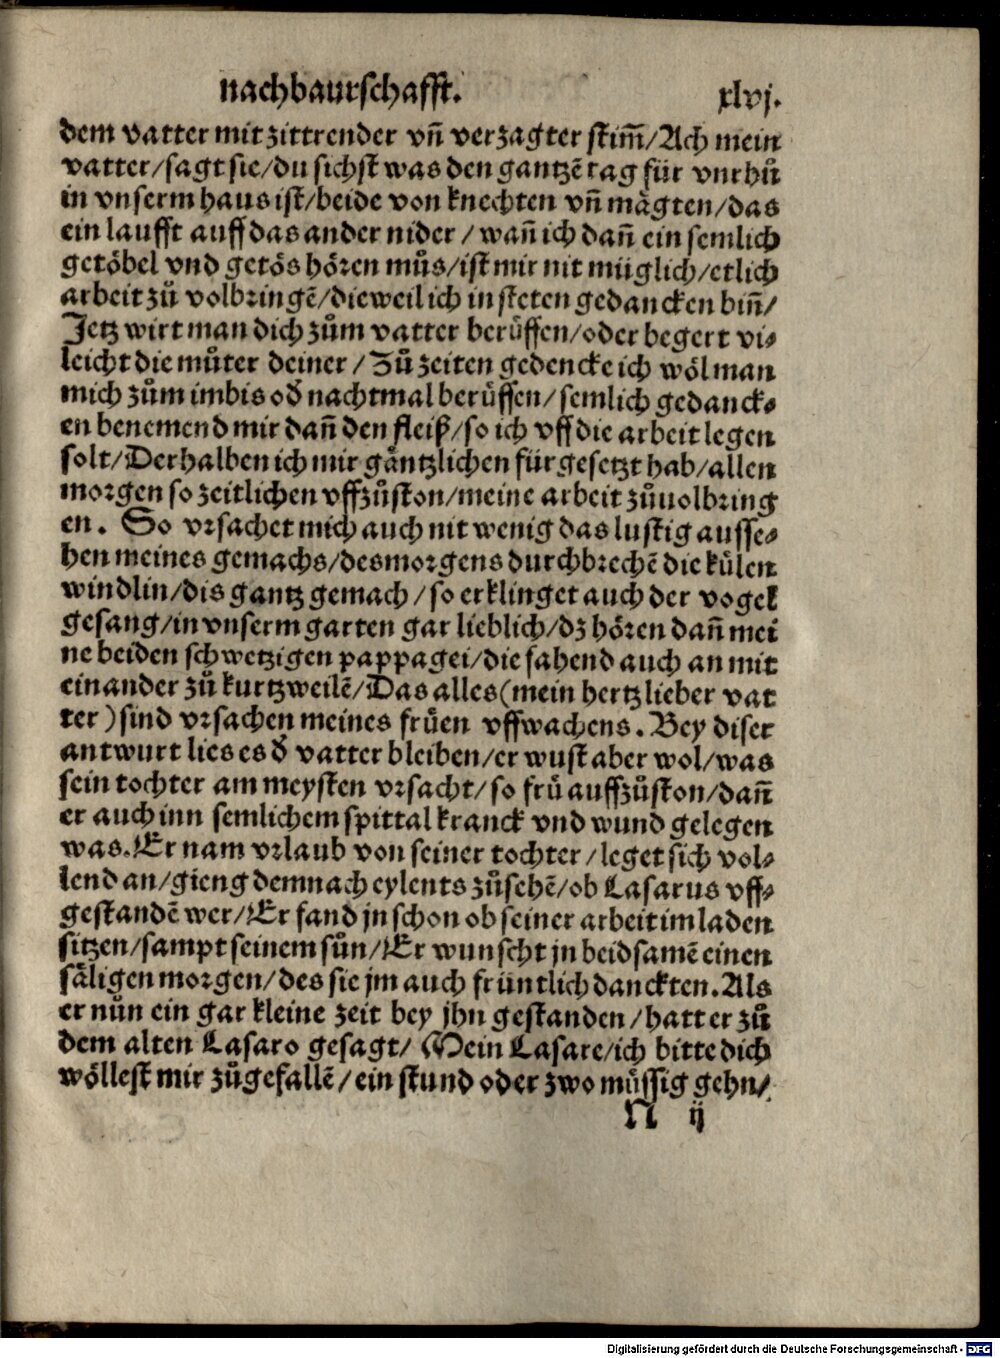 nachbaurschafft. xlvj.
dem vatter mit zittrender vn̄ verzagter stim̄/Ach mein
vatter/sagt sie/du sichst was den gantzē tag für vnrhů
in vnserm haus ist/beide von knechten vn̄ mägten/das
ein laufft auff das ander nider/wan̄ ich dan̄ ein semlich
getöbel vnd getös hören můs/ist mir nit müglich/etlich
arbeit zů volbringē/die weil ich in steten gedancken bin̄/
Jetz wirt man dich zům vatter berüffen/oder begert vi⸗
leicht die můter deiner/Zů zeiten gedencke ich wöl man
mich zům imbis od̓ nachtmal berüffen/semlich gedanck⸗
en benemend mir dan̄ den fleiß/so ich vff die arbeit legen
solt/Derhalben ich mir gäntzlichen für gesetzt hab/allen
morgen so zeitlichen vffzůston/meine arbeit zůuolbring
en. So vrsachet mich auch nit wenig das lustig aussе⸗
hen meines gemachs/des morgens durchbrechē die külen
windlin/dis gantz gemach/so erklinget auch der vogel
gesang/in vnserm garten gar lieblich/dz hören dan̄ mei
ne beiden schwetzigen pappagei/die fahend auch an mit
einander zů kurtzweilē/Das alles(mein hertzlieber vat
ter)sind vrsachen meines früen vffwachens. Bey diser
antwurt lies es d̓ vatter bleiben/er wust aber wol/was
sein tochter am meysten vrsacht/so frü auffzůston/dan̄
er auch inn semlichem spittal kranck vnd wund gelegen
was. Er nam vrlaub von seiner tochter/leget sich vol⸗
lend an/gieng demnach eylents zůsehē/ob Lasarus vff⸗
gestandē wer/Er fand jn schon ob seiner arbeit im laden
sitzen/sampt seinem sůn/Er wunscht jn beidsamē einen
säligen morgen/des sie jm auch früntlich danckten. Als
er nůn ein gar kleine zeit bey jhn gestanden/hatt er zů
dem alten Lasaro gesagt/Mein Lasare/ich bitte dich
wöllest mir zůgefallē/ein stund oder zwo müssig gehn/
N ij
Digitalisierung gefördert durch die Deutsche Forschungsgemeinschaft - DFG